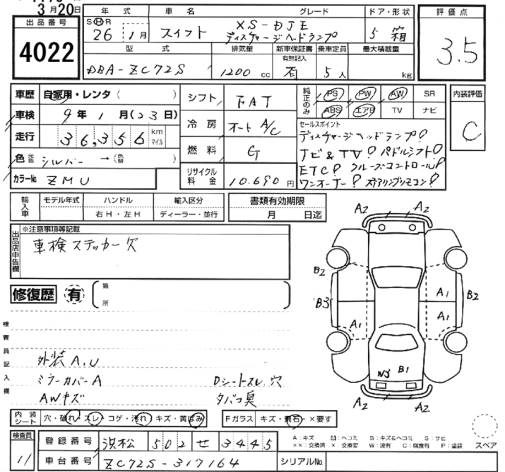 3月20日
出品番号
4022
年式
S H R 26年1月
車名
スイフト
グレード
XS-DJE
ディスチャージヘッドランプ
ドア・形状
5 箱
評価点
3.5
型式
DBA-ZC72S
排気量
1200 cc
新車保証書
有無記入
有
乗車定員
5 人
最大積載量
kg
車歴 自家用・レンタ( )
車検 9年1月(23日)
走行 36,356 km マイル
色 元色 シルバー → 色替( )
カラーNo ZMU
シフト FAT
冷房 オートA/C
燃料 G
リサイクル料金 10.690 円
純正のみ PS PW AW SR
ABS エアB TV ナビ
セールスポイント
ディスチャージヘッドランプ!
ナビ&TV! パドルシフト!
ETC! クルーズコントロール!
ワンオーナー! ステアリングリモコン!
内装評価
C
輸入車 モデル年式 ハンドル 右H・左H 輸入区分 ディーラー・並行
書類有効期限
月 日迄
出品店申告欄
※注意事項等記載
車検ステッカー欠
修復歴 有 箇所
検査員記入欄
外装A,U
ミラーカバーA
AWキズ
Dシートスレ,穴
タバコ臭
A2 A2
B2 A1 B2
B3 A1 A1
W3 B1
A2 A2
内装シート 穴・破れ・スレ・コゲ・汚れ・キズ・黄ばみ
Fガラス キズ・飛石・×要す
検査員
11
登録番号 浜松 502 せ 3445
車台番号 ZC72S-317164
シリアルNo
スペア